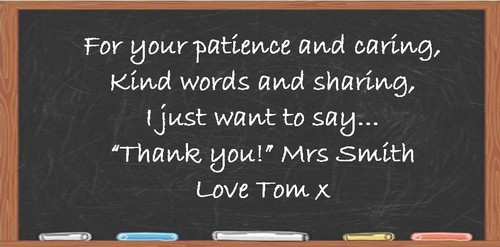 For your patience and caring,
Kind words and sharing,
I just want to say...
“Thank you!” Mrs Smith
Love Tom x